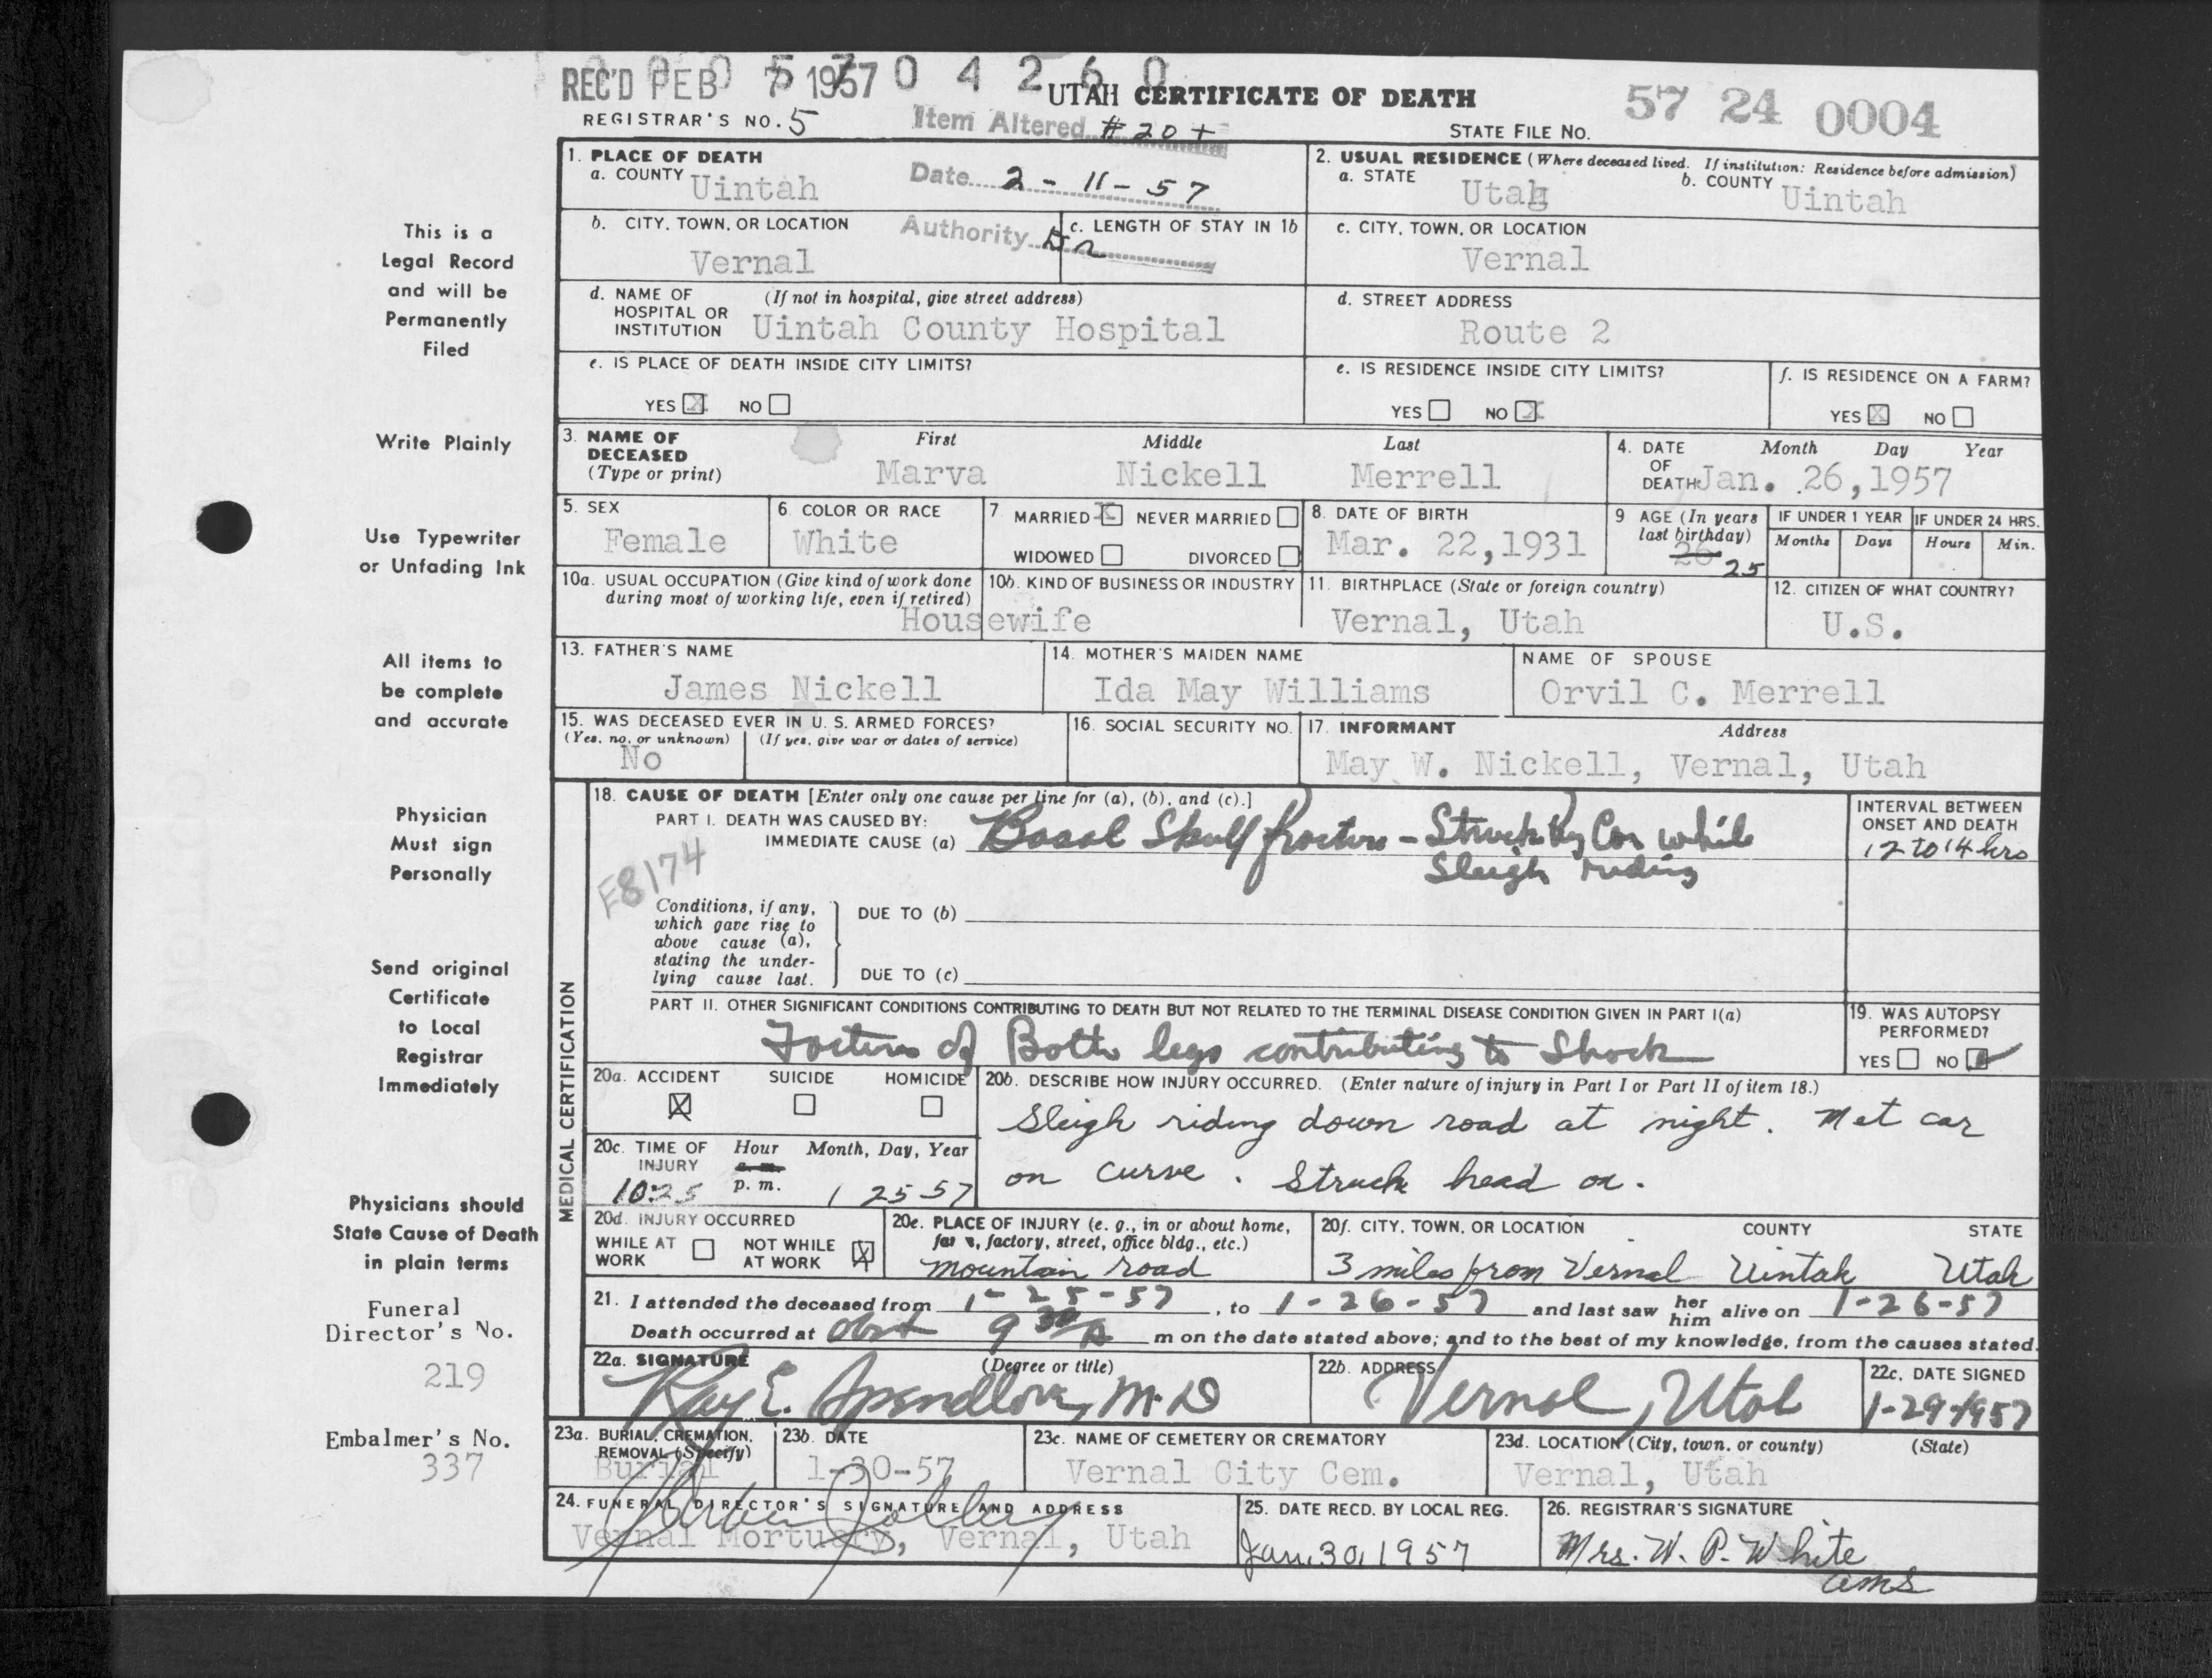 REC'D FEB 7 1957 0 4 2 6 0
UTAH CERTIFICATE OF DEATH
57 24 0004
REGISTRAR'S NO. 5
Item Altered # 20 +
STATE FILE NO.
1. PLACE OF DEATH
a. COUNTY Uintah
Date 2-11-57
2. USUAL RESIDENCE (Where deceased lived. If institution: Residence before admission)
a. STATE Utah
b. COUNTY Uintah
b. CITY, TOWN, OR LOCATION
Vernal
Authority
c. LENGTH OF STAY IN 1b
c. CITY, TOWN, OR LOCATION
Vernal
d. NAME OF HOSPITAL OR INSTITUTION (If not in hospital, give street address)
Uintah County Hospital
d. STREET ADDRESS
Route 2
e. IS PLACE OF DEATH INSIDE CITY LIMITS?
YES X NO
e. IS RESIDENCE INSIDE CITY LIMITS?
YES NO X
f. IS RESIDENCE ON A FARM?
YES X NO
3. NAME OF DECEASED (Type or print)
First Middle Last
Marva Nickell Merrell
4. DATE OF DEATH Month Day Year
Jan. 26,1957
5. SEX
Female
6. COLOR OR RACE
White
7. MARRIED X NEVER MARRIED
WIDOWED DIVORCED
8. DATE OF BIRTH
Mar. 22,1931
9 AGE (In years last birthday)
26 25
IF UNDER 1 YEAR
Months Days
IF UNDER 24 HRS.
Hours Min.
10a. USUAL OCCUPATION (Give kind of work done during most of working life, even if retired)
10b. KIND OF BUSINESS OR INDUSTRY
Housewife
11. BIRTHPLACE (State or foreign country)
Vernal, Utah
12. CITIZEN OF WHAT COUNTRY?
U.S.
13. FATHER'S NAME
James Nickell
14. MOTHER'S MAIDEN NAME
Ida May Williams
NAME OF SPOUSE
Orvil C. Merrell
15. WAS DECEASED EVER IN U. S. ARMED FORCES?
(Yes, no, or unknown) (If yes, give war or dates of service)
No
16. SOCIAL SECURITY NO.
17. INFORMANT Address
May W. Nickell, Vernal, Utah
MEDICAL CERTIFICATION
18. CAUSE OF DEATH [Enter only one cause per line for (a), (b), and (c).]
PART I. DEATH WAS CAUSED BY:
IMMEDIATE CAUSE (a) Basal Skull fracture - Struck by Car while
Sleigh riding
INTERVAL BETWEEN ONSET AND DEATH
12 to 14 hrs
E8174
Conditions, if any, which gave rise to above cause (a), stating the underlying cause last.
DUE TO (b)
DUE TO (c)
PART II. OTHER SIGNIFICANT CONDITIONS CONTRIBUTING TO DEATH BUT NOT RELATED TO THE TERMINAL DISEASE CONDITION GIVEN IN PART I(a)
of Both legs contributing to Shock
19. WAS AUTOPSY PERFORMED?
YES NO
20a. ACCIDENT SUICIDE HOMICIDE
X
20b. DESCRIBE HOW INJURY OCCURRED. (Enter nature of injury in Part I or Part II of item 18.)
Sleigh riding down road at night. Met car
on curve. Struck head on.
20c. TIME OF INJURY Hour Month, Day, Year
a. m.
p. m.
10:25 1 25 57
20d. INJURY OCCURRED
WHILE AT WORK NOT WHILE AT WORK X
20e. PLACE OF INJURY (e. g., in or about home, farm, factory, street, office bldg., etc.)
mountain road
20f. CITY, TOWN, OR LOCATION COUNTY STATE
3 miles from Vernal Uintah Utah
21. I attended the deceased from 1-25-57, to 1-26-57 and last saw her him alive on 1-26-57
Death occurred at 9 30 A m on the date stated above; and to the best of my knowledge, from the causes stated.
22a. SIGNATURE (Degree or title)
Ray E. Spendlove, M.D
22b. ADDRESS
Vernal, Utah
22c. DATE SIGNED
1-29-1957
23a. BURIAL, CREMATION, REMOVAL (Specify)
Burial
23b. DATE
1-30-57
23c. NAME OF CEMETERY OR CREMATORY
Vernal City Cem.
23d. LOCATION (City, town, or county) (State)
Vernal, Utah
24. FUNERAL DIRECTOR'S SIGNATURE AND ADDRESS
Vernal Mortuary, Vernal, Utah
25. DATE RECD. BY LOCAL REG.
Jan. 30, 1957
26. REGISTRAR'S SIGNATURE
Mrs. W. P. White
ams
This is a
Legal Record
and will be
Permanently
Filed
Write Plainly
Use Typewriter
or Unfading Ink
All items to
be complete
and accurate
Physician
Must sign
Personally
Send original
Certificate
to Local
Registrar
Immediately
Physicians should
State Cause of Death
in plain terms
Funeral
Director's No.
219
Embalmer's No.
337